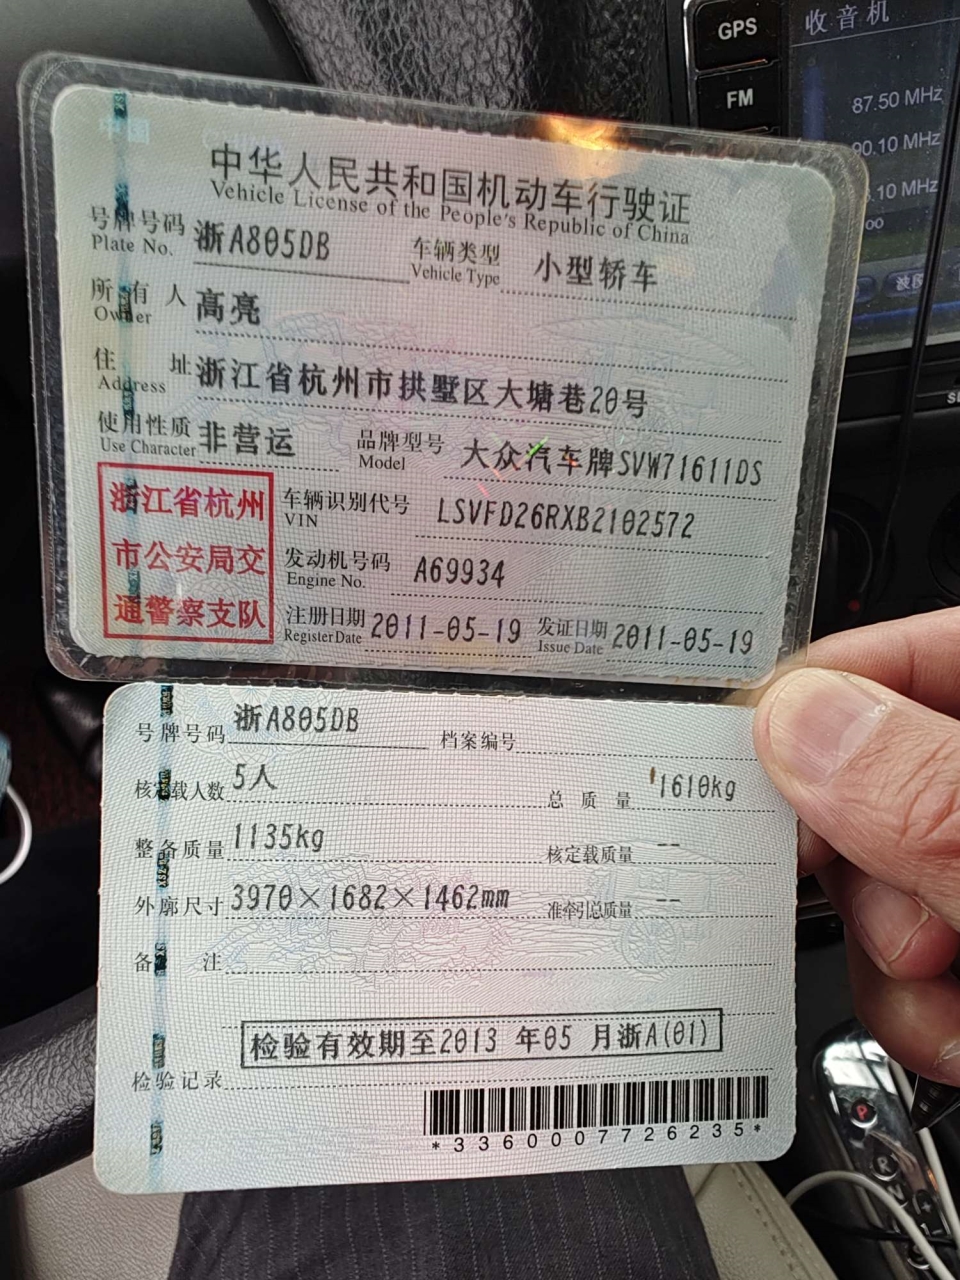 GPS
收音机
FM
87.50 MHz
90.10 MHz
.10 MHz
中华人民共和国机动车行驶证
Vehicle License of the People's Republic of China
号牌号码 浙A805DB 车辆类型 小型轿车
Plate No. Vehicle Type
所有人 高亮
Owner
住址 浙江省杭州市拱墅区大塘巷20号
Address
使用性质 非营运 品牌型号 大众汽车牌SVW71611DS
Use Character Model
浙江省杭州
市公安局交
通警察支队
车辆识别代号 LSVFD26RXB2102572
VIN
发动机号码 A69934
Engine No.
注册日期 2011-05-19 发证日期 2011-05-19
Register Date Issue Date
号牌号码 浙A805DB 档案编号
核定载人数 5人 总质量 1610kg
整备质量 1135kg 核定载质量 --
外廓尺寸 3970×1682×1462mm 准牵引总质量 --
备注
检验有效期至2013 年05 月浙A(01)
检验记录
*3360007726235*
P
R